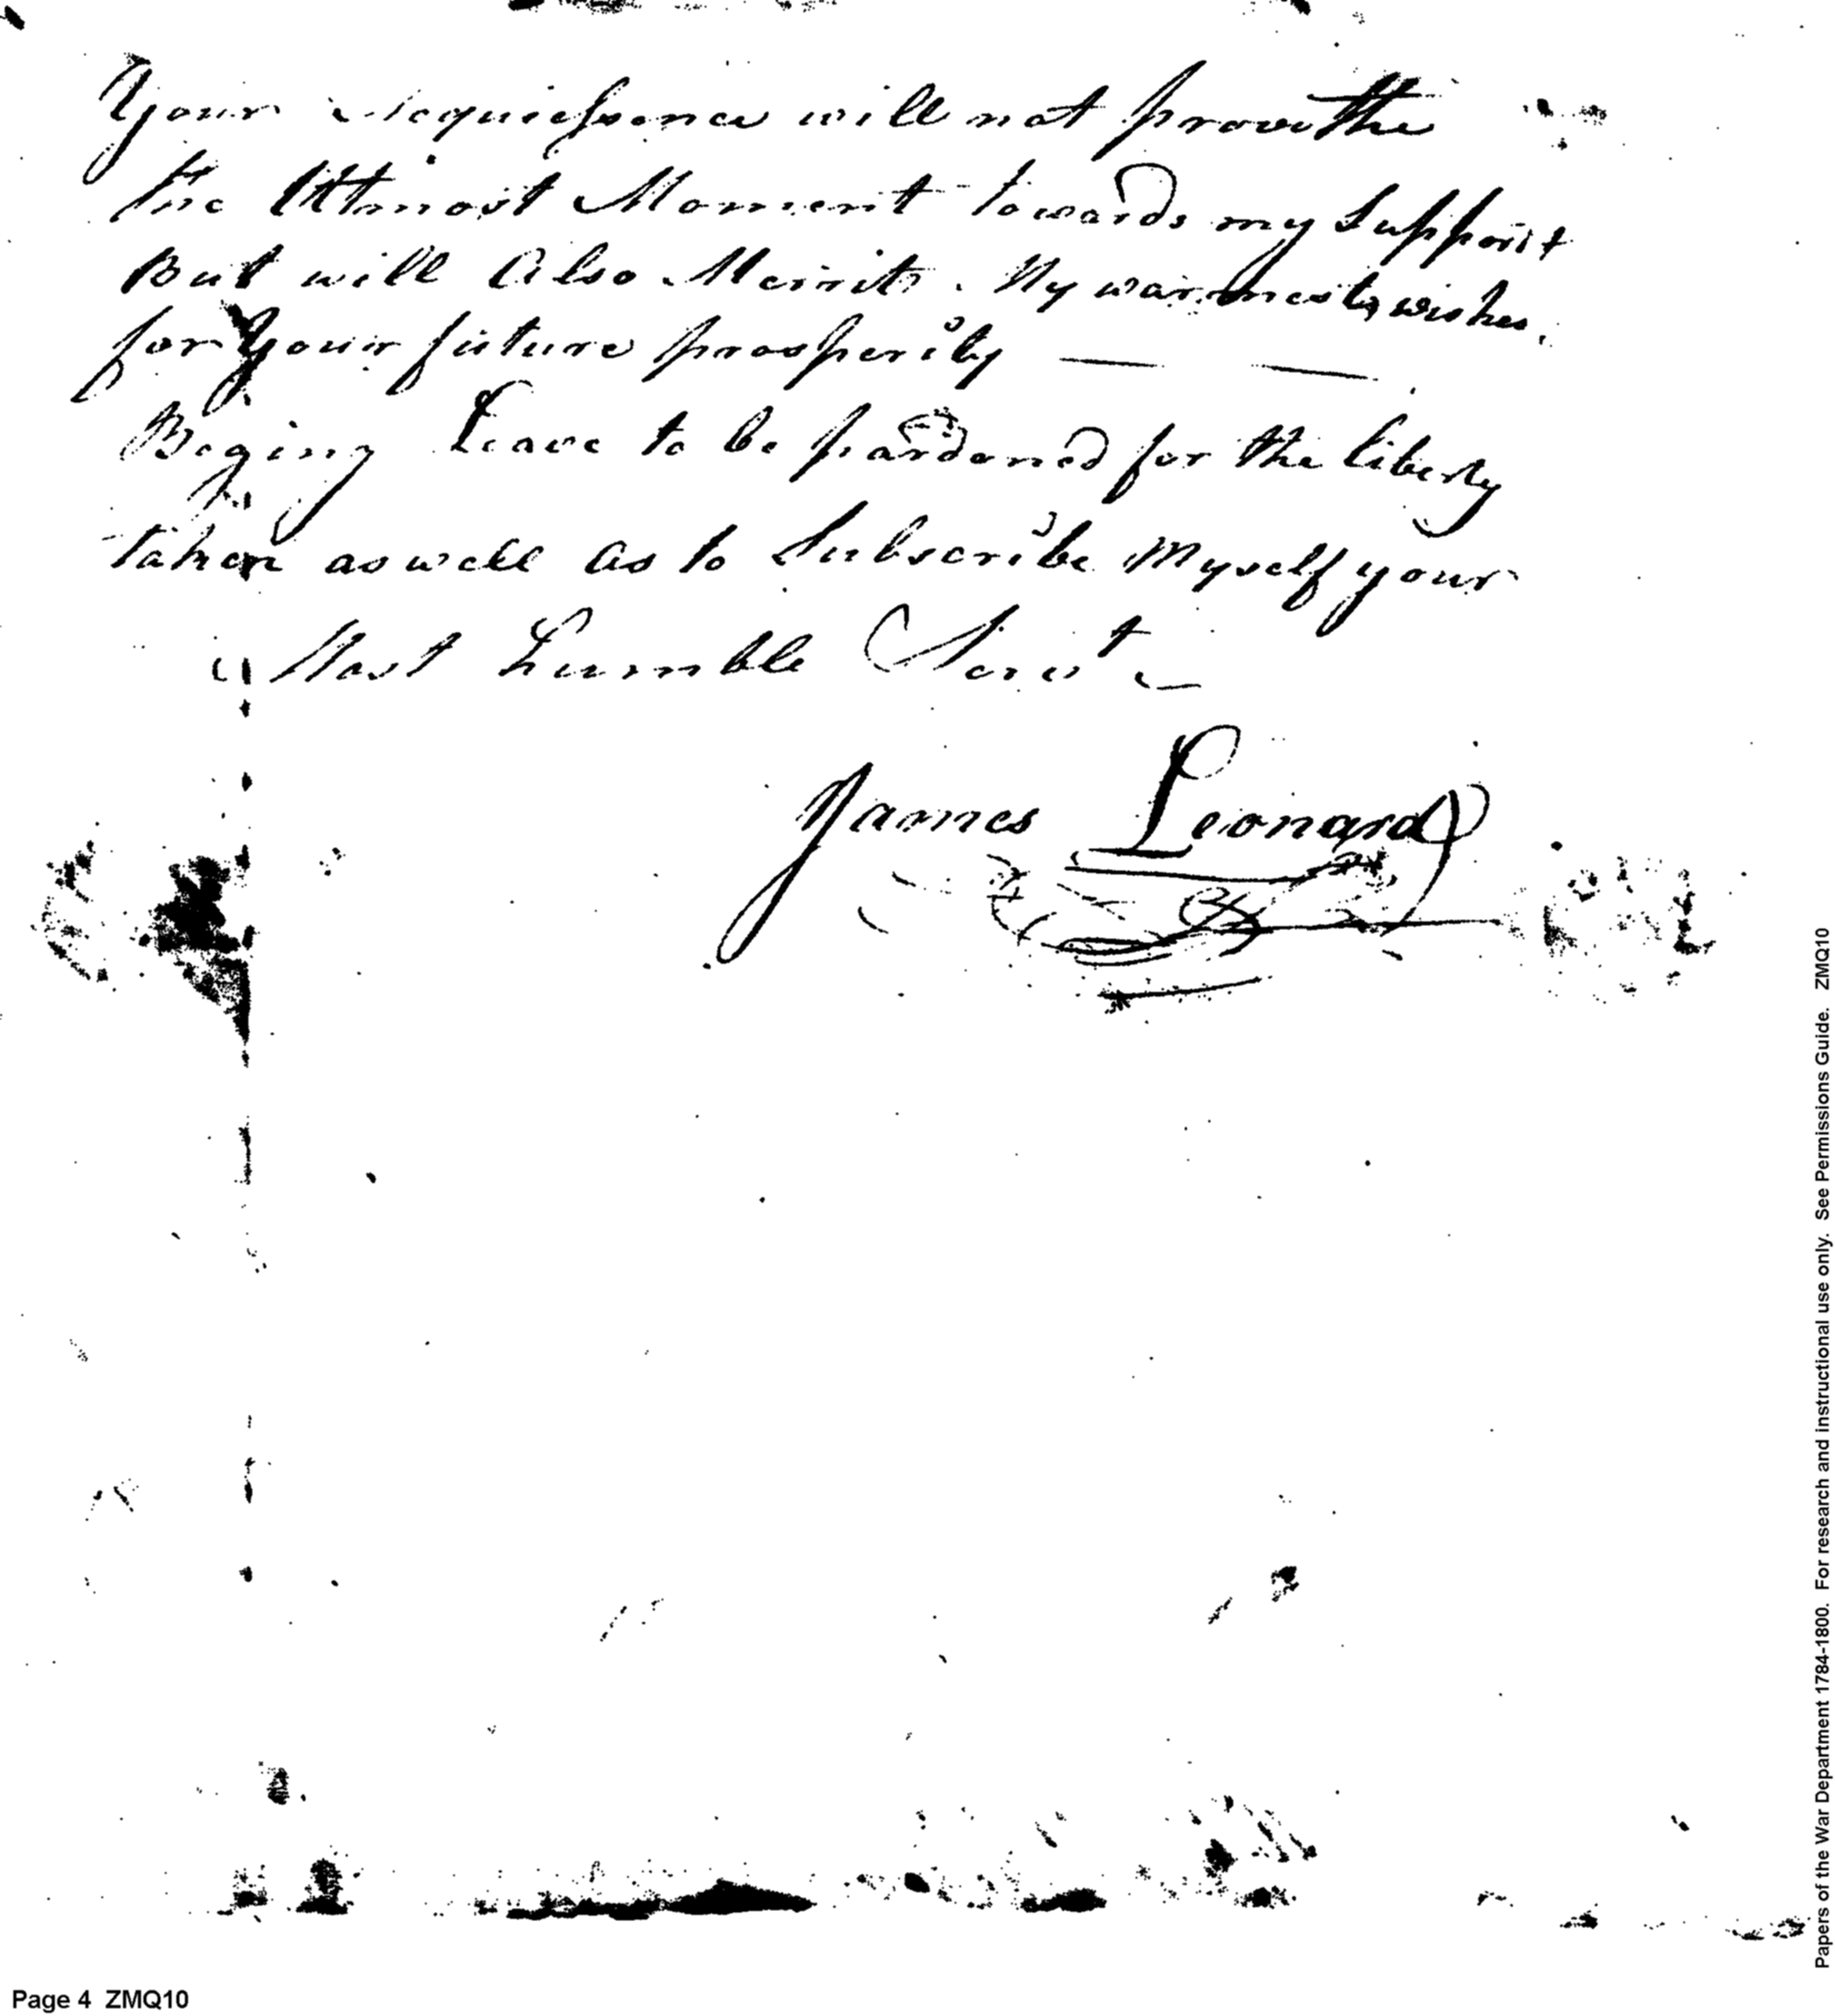 Your Acquiessence will not prove the
the Uttmost Moment towards my Support
But will Also Merrit My warmests wishes
for Your future prosperity
Beging Leave to be pardoned for the liberty
taken as well as to Subscribe Myself your
Most humble Servt
James Leonard
Papers of the War Department 1784-1800. For research and instructional use only. See Permissions Guide. ZMQ10
Page 4 ZMQ10